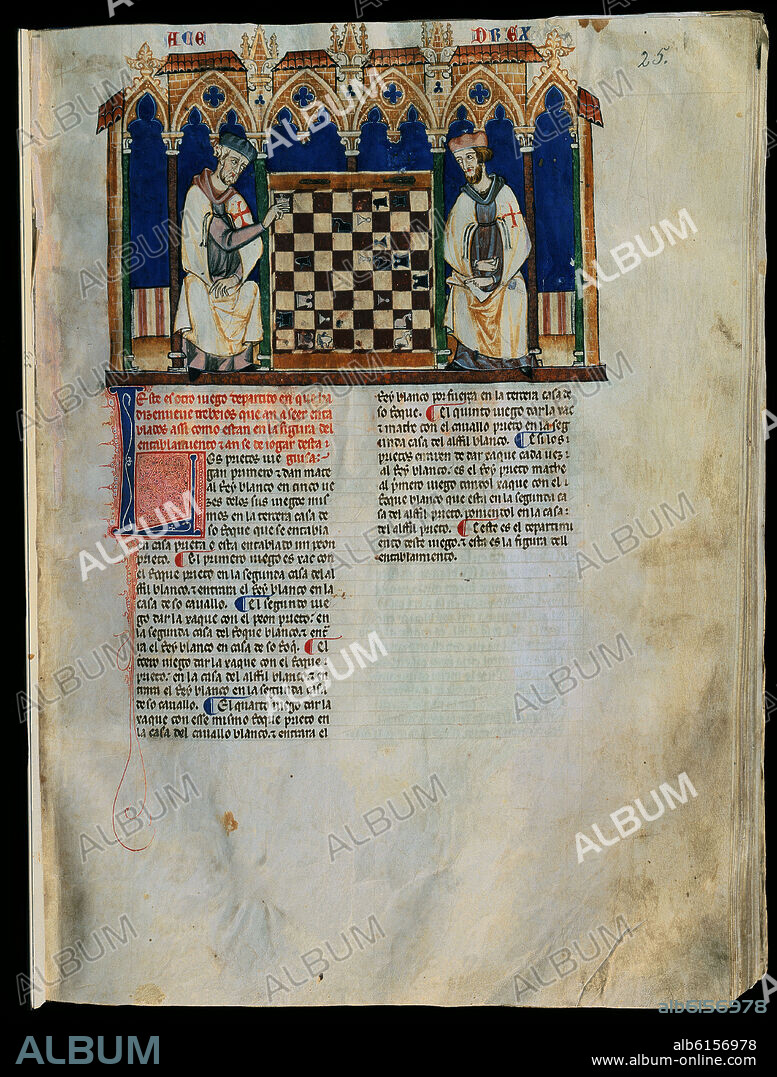 ACE DREX
25.
Este es otro iuego departito en que ha
diz e nueue trebeios que an a seer enta
blados assi como estan en la figura del
entablamiento & an se de iogar desta
guisa:
Los prietos iue
gan primero & dan mate
al Rey blanco en cinco ue
zes delos sus iuegos mis
mos en la tercera casa de
so Roque que se entabla
en casa prieta o esta entablado un peon
prieto. El primero iuego es xac con
el Roque prieto en la segunda casa del al
ffil blanco. & entrara el Rey blanco en la
casa de so cauallo. El segundo iue
go dar la xaque con el peon prieto. en
la segunda casa del Roque blanco. & entra
ra el Rey blanco en casa de so Roq. El
tercero iuego dar la xaque con el Roque
prieto. en la casa del alffil blanco. & en
trara el Rey blanco en la segunda casa
de so cauallo. El quarto iuego dar la
xaque con esse mismo Roque prieto en
la casa del cauallo blanco. & entrara el
Rey blanco por fuerça en la tercera casa de
so Roque. El quinto iuego dar la xac
& mate con el cauallo prieto en la seg
unda casa del alffil blanco. E si los
prietos erraren de dar xaque cada uez
al Rey blanco. es el Rey prieto mathe
al primero iuego con el xaque con el
Roque blanco que esta en la segunda ca
sa del alffil prieto. poniendol en la casa
del alffil prieto. E este es el departimi
ento deste iuego. & esta es la figura dell
entablamiento.
ALBUM
alb6156978
ALBUM
alb6156978
www.album-online.com